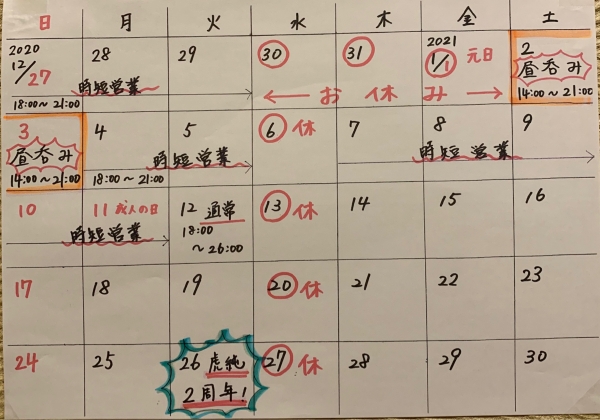 日 月 火 水 木 金 土
2020 12/27 28 29 30 31 2021 1/1 元日 2
時短営業 お休み 昼呑み
18:00～21:00 14:00～21:00
3 4 5 6 休 7 8 9
昼呑み 時短営業 時短営業
14:00～21:00 18:00～21:00
10 11 成人の日 12 通常 13 休 14 15 16
時短営業 18:00
～26:00
17 18 19 20 休 21 22 23
24 25 26 虎純 27 休 28 29 30
2周年!